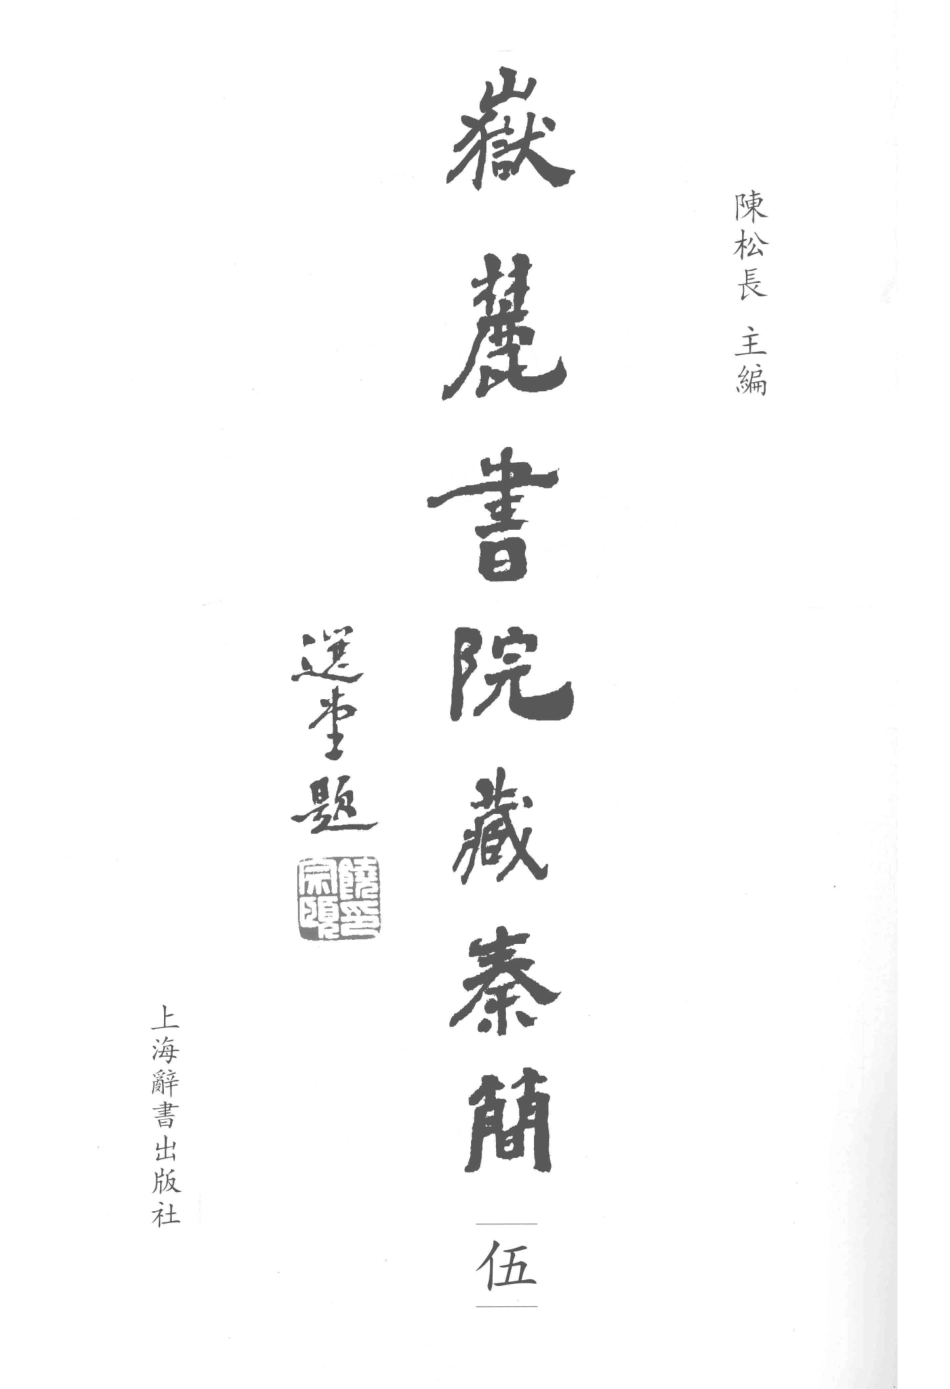 陳松長 主編
嶽麓書院藏秦簡
伍
選堂題
饒宗頤印
上海辭書出版社